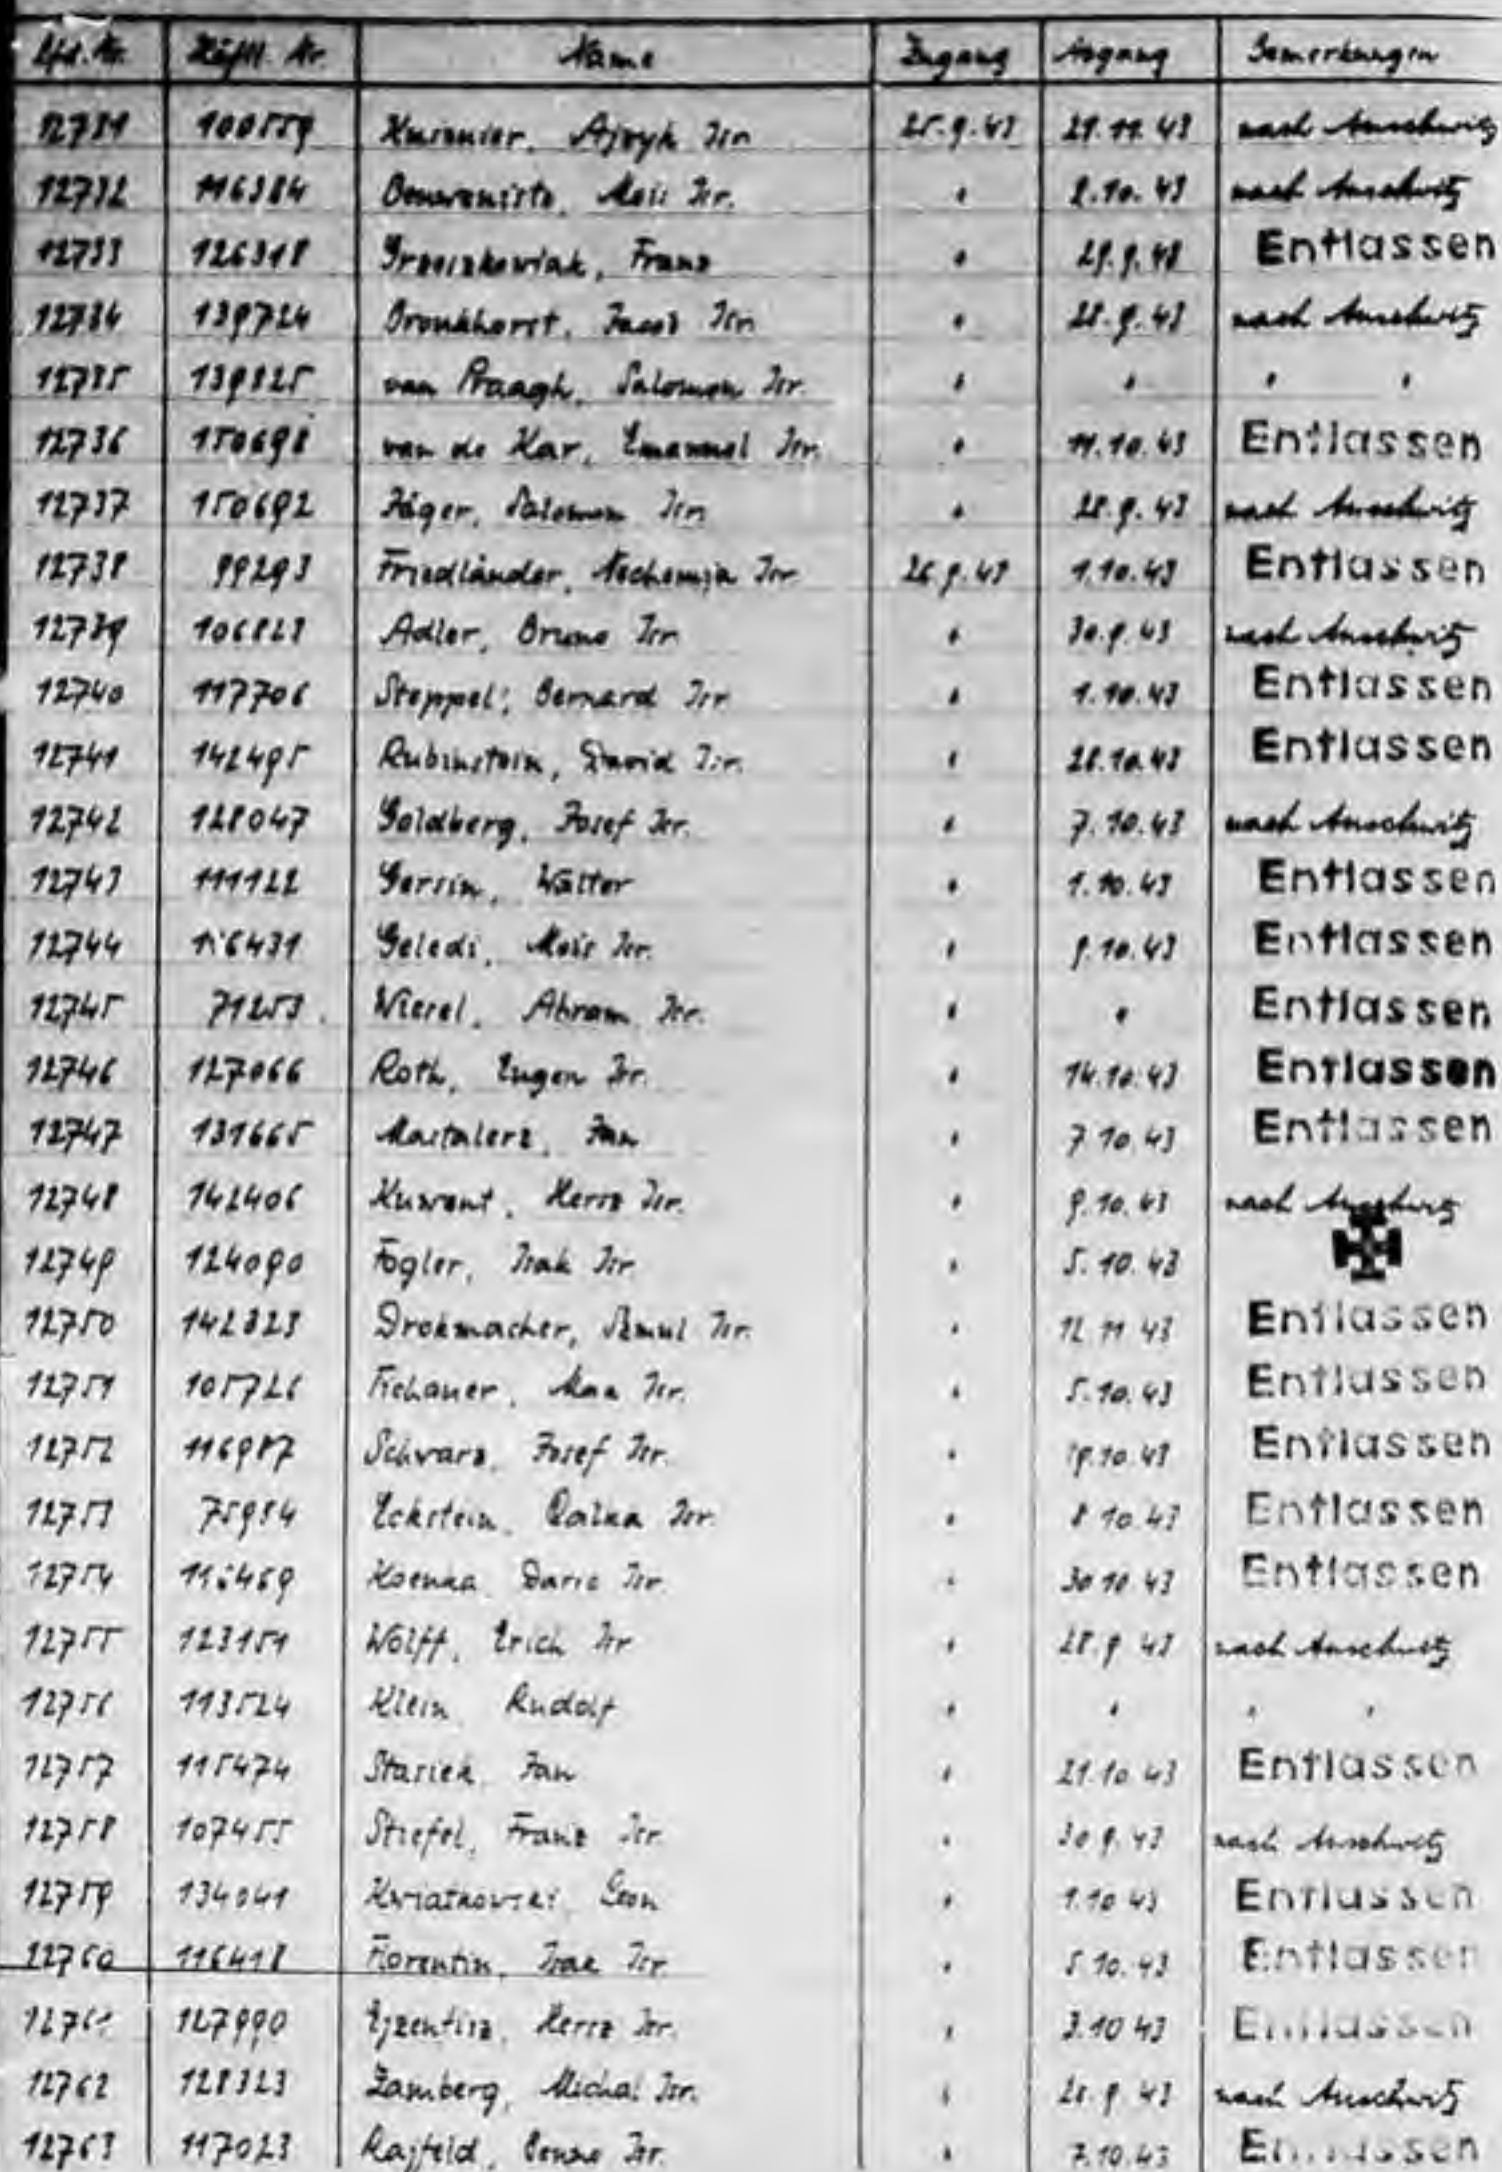 Lfd. Nr. Häftl. Nr. Name Zugang Abgang Bemerkungen
12731 100559 Ajzyk Isr. 25.9.43 29.11.43 nach Auschwitz
12732 116384 Benveniste, Mois Isr. " 2.10.43 nach Auschwitz
12733 126318 Franz " 29.9.43 Entlassen
12734 139724 Bronkhorst, Jacob Isr. " 28.9.43 nach Auschwitz
12735 139825 van Praagh, Salomon Isr. " " " "
12736 150698 van de Kar, Emanuel Isr. " 11.10.43 Entlassen
12737 150692 Jäger, Salomon Isr. " 28.9.43 nach Auschwitz
12738 99293 Friedländer, Nechemja Isr. 26.9.43 1.10.43 Entlassen
12739 106823 Adler, Bruno Isr. " 30.9.43 nach Auschwitz
12740 117706 Steppel, Bernard Isr. " 1.10.43 Entlassen
12741 142495 Rubinstein, David Isr. " 28.10.43 Entlassen
12742 128047 Goldberg, Josef Isr. " 7.10.43 nach Auschwitz
12743 111122 Gersin, Walter " 1.10.43 Entlassen
12744 116431 Geledi, Mois Isr. " 9.10.43 Entlassen
12745 71253 Abram Isr. " " Entlassen
12746 127066 Roth, Eugen Isr. " 14.10.43 Entlassen
12747 131665 Mastalerz, Jan " 7.10.43 Entlassen
12748 142406 Kuwent, Hersz Isr. " 9.10.43 nach Auschwitz
12749 124090 Fogler, Isak Isr. " 5.10.43
12750 142323 Szmul Isr. " 12.11.43 Entlassen
12751 105726 Max Isr. " 5.10.43 Entlassen
12752 116987 Schwarz, Josef Isr. " 19.10.43 Entlassen
12753 75984 Eckstein, Isr. " 8.10.43 Entlassen
12754 116469 Isr. " 30.10.43 Entlassen
12755 123151 Wolff, Erich Isr. " 28.9.43 nach Auschwitz
12756 113524 Klein, Rudolf " " " "
12757 115474 Stasiek, Jan " 21.10.43 Entlassen
12758 107455 Stiefel, Franz Isr. " 30.9.43 nach Auschwitz
12759 134041 Kwiatkowski, Leon " 1.10.43 Entlassen
12760 116418 Florentin, Isak Isr. " 5.10.43 Entlassen
12761 127990 Hersz Isr. " 3.10.43 Entlassen
12762 128323 Zamberg, Michal Isr. " 28.9.43 nach Auschwitz
12763 117023 Rajfeld, Benno Isr. " 7.10.43 Entlassen